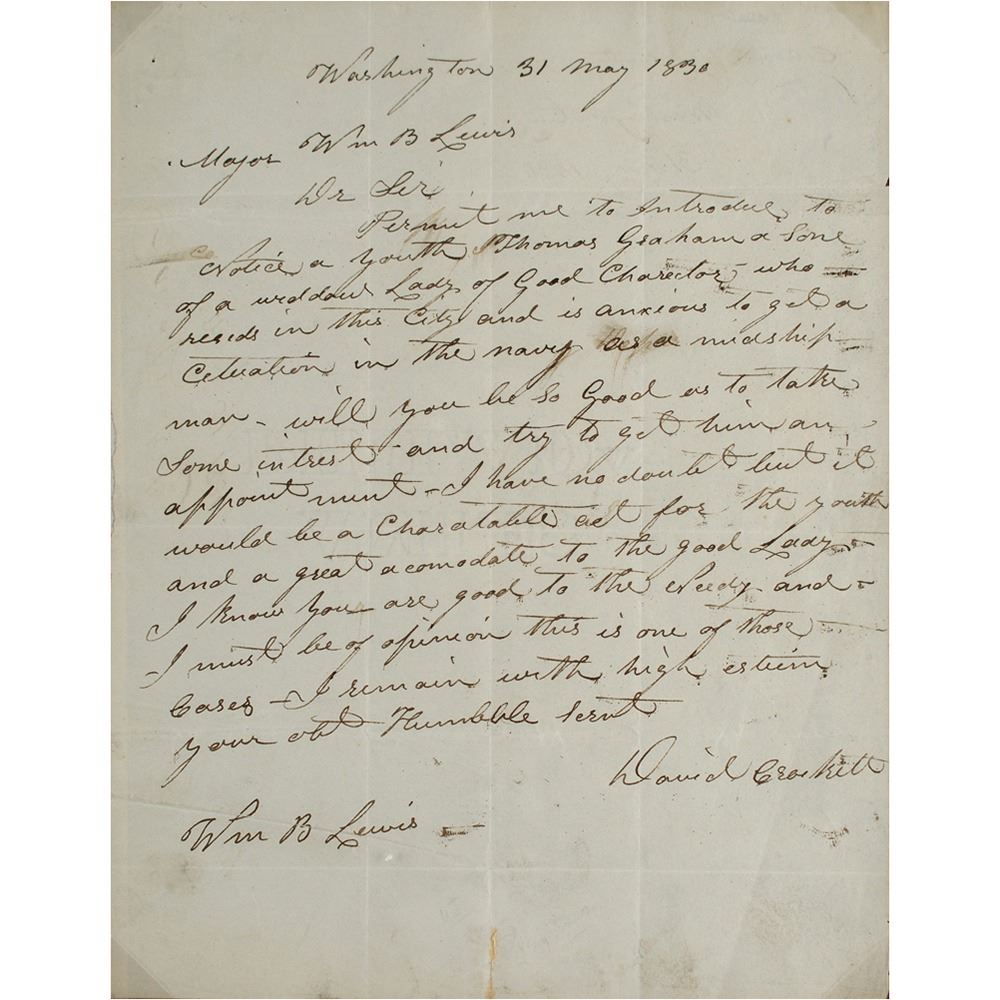 Washington 31 May 1830
Major Wm B Lewis
Dr Sir
Permit me to Introduce to
Notice a youth Thomas Graham a Sone
of a widdow Lady of Good Charector who
reasids in this City and is anxious to get a
Cituation in the navey as a midship
man - will you be So Good as to take
Some intrest and try to get him an
appointment - I have no doubt but it
would be a Charatable act for the youth
and a great acomodate to the good Lady -
I know you are good to the Needy and -
I must be of opinion this is one of those
Cases - I remain with high esteem
your obt Humbble Servt
David Crockett
Wm B Lewis